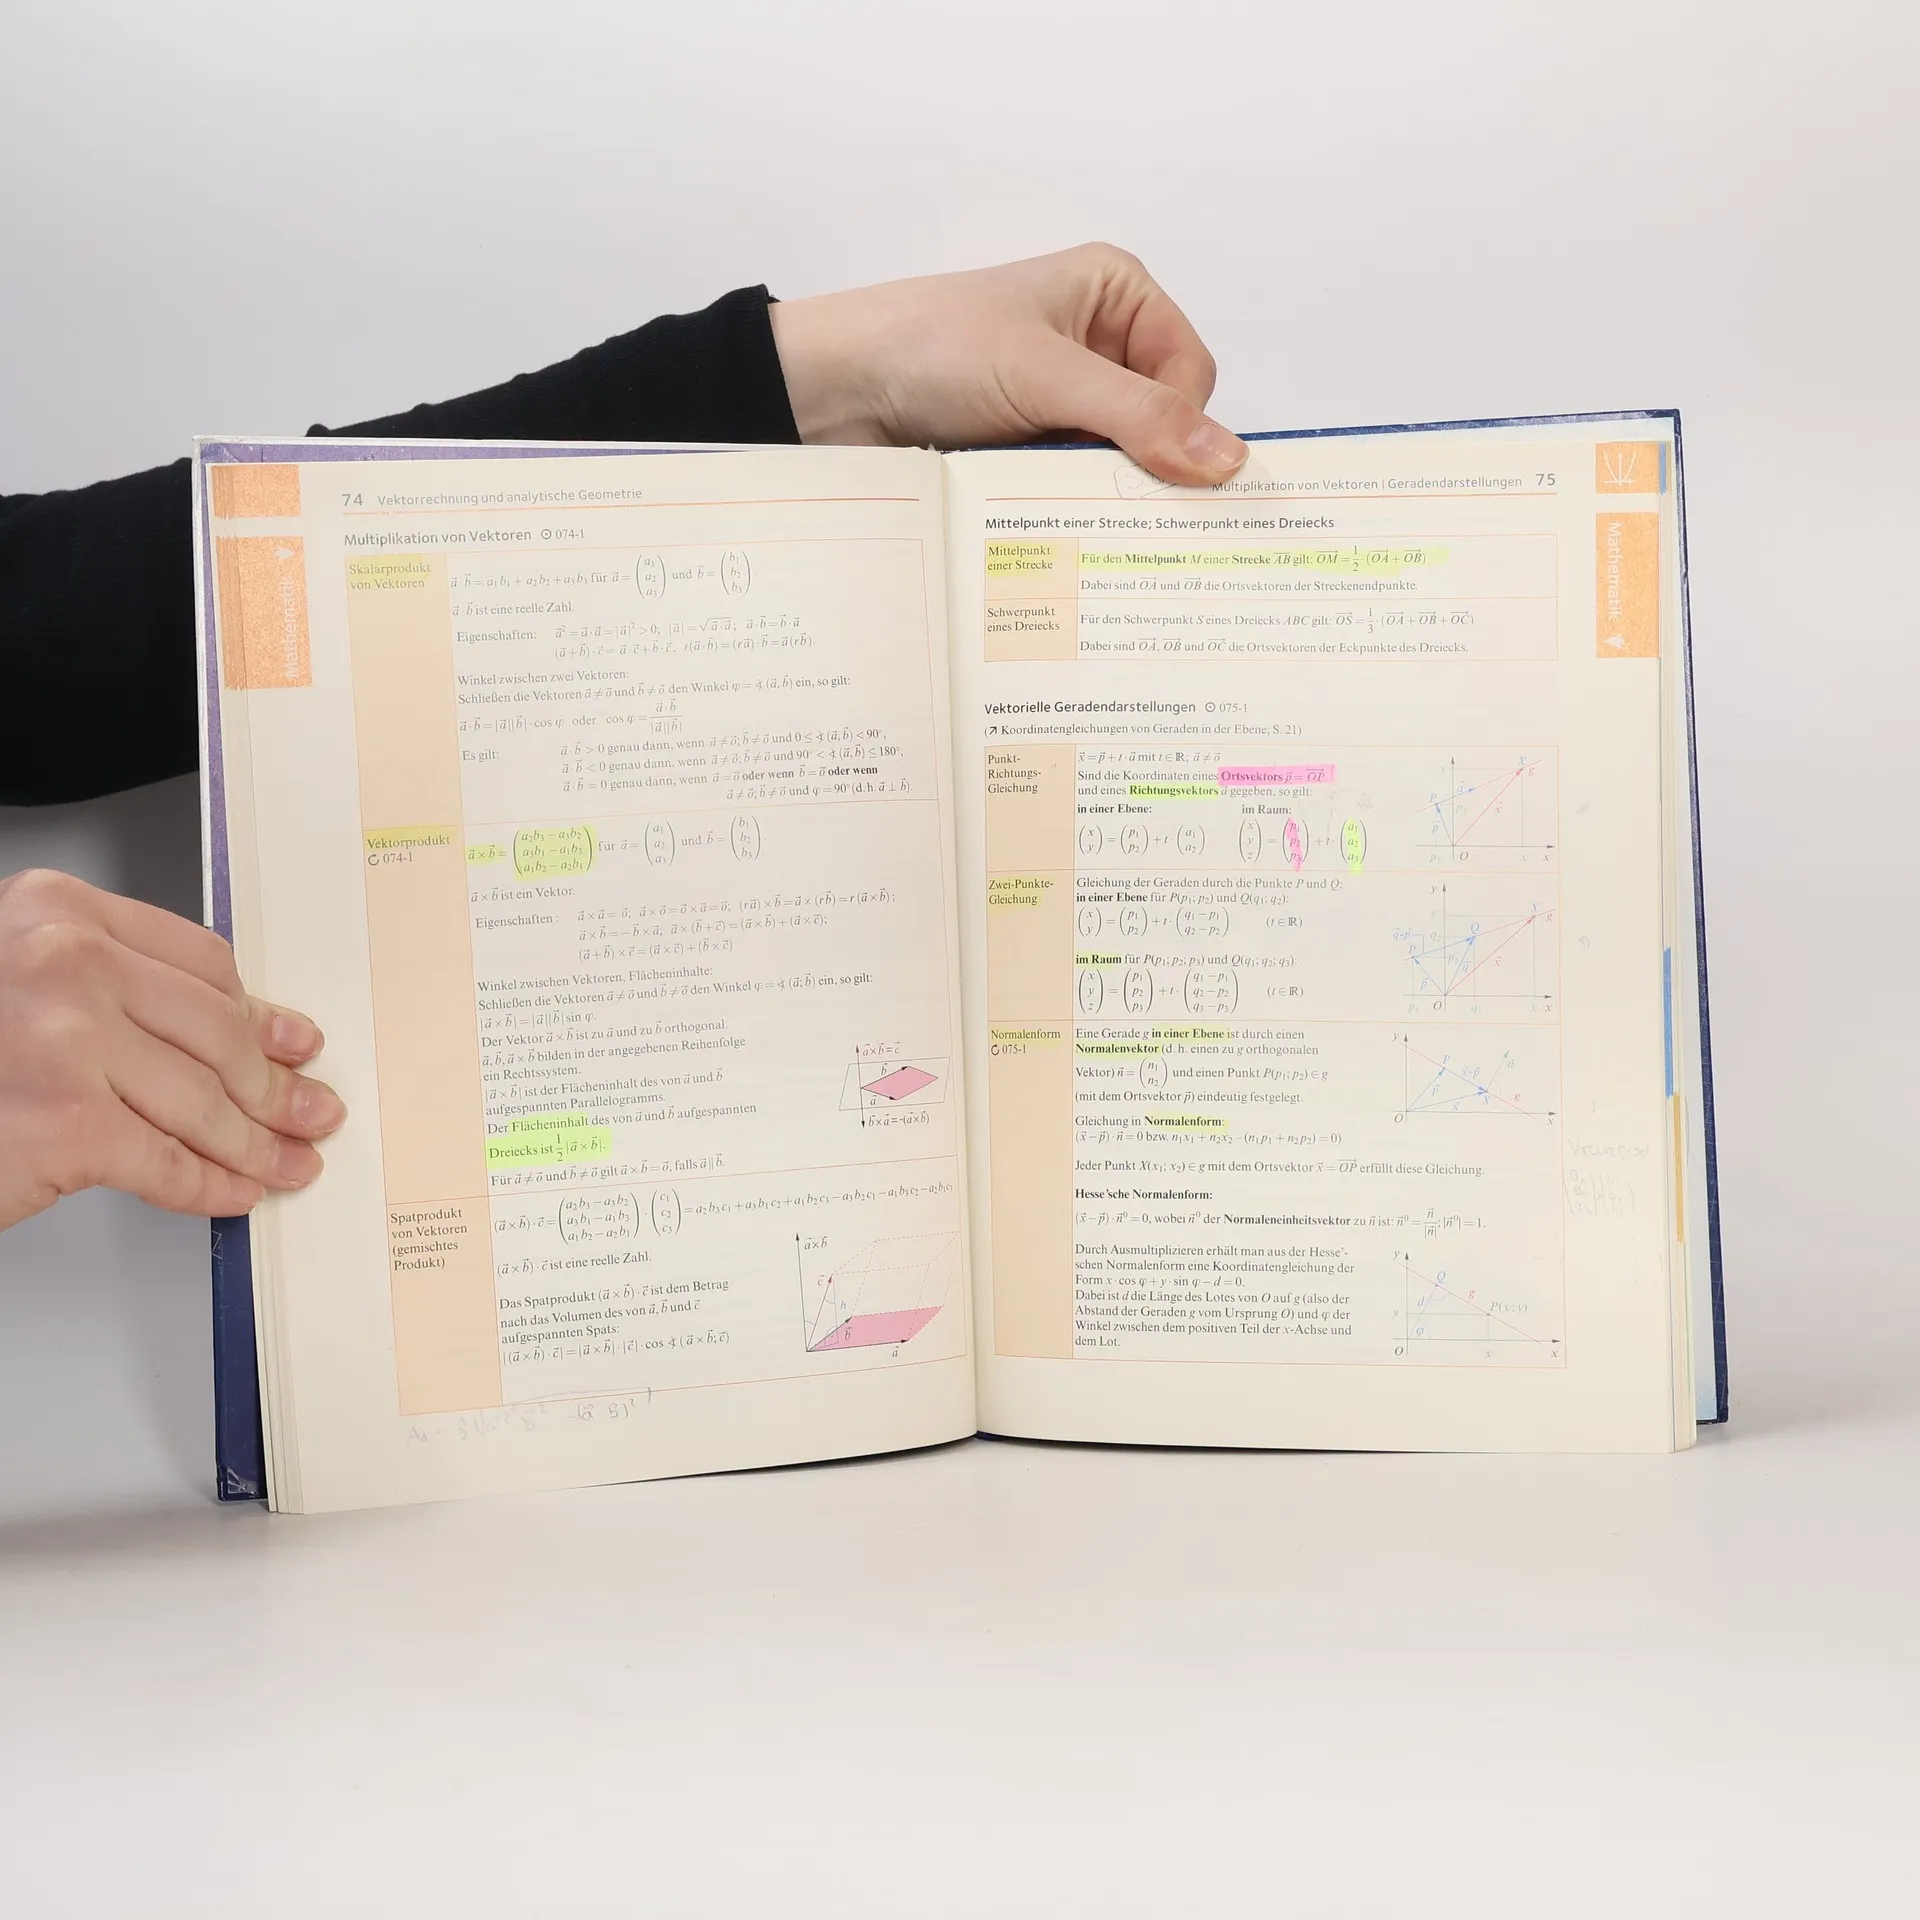 74 Vektorrechnung und analytische Geometrie
Mathematik
Multiplikation von Vektoren ⊙ 074-1
Skalarprodukt
von Vektoren
a⃗·b⃗ = a₁b₁ + a₂b₂ + a₃b₃ für a⃗ = (a₁ a₂ a₃) und b⃗ = (b₁ b₂ b₃).
a⃗·b⃗ ist eine reelle Zahl.
Eigenschaften: a⃗² = a⃗·a⃗ = |a⃗|² > 0; |a⃗| = √(a⃗·a⃗); a⃗·b⃗ = b⃗·a⃗
(a⃗+b⃗)·c⃗ = a⃗·c⃗ + b⃗·c⃗; r(a⃗·b⃗) = (ra⃗)·b⃗ = a⃗(rb⃗).
Winkel zwischen zwei Vektoren:
Schließen die Vektoren a⃗ ≠ o⃗ und b⃗ ≠ o⃗ den Winkel φ = ∢(a⃗, b⃗) ein, so gilt:
a⃗·b⃗ = |a⃗||b⃗|·cos φ oder cos φ = a⃗·b⃗ / |a⃗||b⃗|
Es gilt: a⃗·b⃗ > 0 genau dann, wenn a⃗ ≠ o⃗; b⃗ ≠ o⃗ und 0 ≤ ∢(a⃗, b⃗) < 90°,
a⃗·b⃗ < 0 genau dann, wenn a⃗ ≠ o⃗; b⃗ ≠ o⃗ und 90° < ∢(a⃗, b⃗) ≤ 180°,
a⃗·b⃗ = 0 genau dann, wenn a⃗ = o⃗ oder wenn b⃗ = o⃗ oder wenn
a⃗ ≠ o⃗; b⃗ ≠ o⃗ und φ = 90° (d. h. a⃗ ⊥ b⃗).
Vektorprodukt
074-1
a⃗×b⃗ = (a₂b₃ − a₃b₂ a₃b₁ − a₁b₃ a₁b₂ − a₂b₁) für a⃗ = (a₁ a₂ a₃) und b⃗ = (b₁ b₂ b₃).
a⃗×b⃗ ist ein Vektor.
Eigenschaften: a⃗×a⃗ = o⃗; a⃗×o⃗ = o⃗×a⃗ = o⃗; (ra⃗)×b⃗ = a⃗×(rb⃗) = r(a⃗×b⃗);
a⃗×b⃗ = −b⃗×a⃗; a⃗×(b⃗+c⃗) = (a⃗×b⃗)+(a⃗×c⃗);
(a⃗+b⃗)×c⃗ = (a⃗×c⃗)+(b⃗×c⃗)
Winkel zwischen Vektoren, Flächeninhalte:
Schließen die Vektoren a⃗ ≠ o⃗ und b⃗ ≠ o⃗ den Winkel φ = ∢(a⃗; b⃗) ein, so gilt:
|a⃗×b⃗| = |a⃗||b⃗| sin φ.
Der Vektor a⃗×b⃗ ist zu a⃗ und zu b⃗ orthogonal.
a⃗, b⃗, a⃗×b⃗ bilden in der angegebenen Reihenfolge
ein Rechtssystem.
|a⃗×b⃗| ist der Flächeninhalt des von a⃗ und b⃗
aufgespannten Parallelogramms.
Der Flächeninhalt des von a⃗ und b⃗ aufgespannten
Dreiecks ist 1/2 |a⃗×b⃗|.
Für a⃗ ≠ o⃗ und b⃗ ≠ o⃗ gilt a⃗×b⃗ = o⃗, falls a⃗ ∥ b⃗.
a⃗×b⃗=c⃗
b⃗
a⃗
b⃗×a⃗=-(a⃗×b⃗)
Spatprodukt
von Vektoren
(gemischtes
Produkt)
(a⃗×b⃗)·c⃗ = (a₂b₃ − a₃b₂ a₃b₁ − a₁b₃ a₁b₂ − a₂b₁)·(c₁ c₂ c₃) = a₂b₃c₁ + a₃b₁c₂ + a₁b₂c₃ − a₃b₂c₁ − a₁b₃c₂ − a₂b₁c₃
(a⃗×b⃗)·c⃗ ist eine reelle Zahl.
Das Spatprodukt (a⃗×b⃗)·c⃗ ist dem Betrag
nach das Volumen des von a⃗, b⃗ und c⃗
aufgespannten Spats:
|(a⃗×b⃗)·c⃗| = |a⃗×b⃗|·|c⃗|·cos ∢(a⃗×b⃗; c⃗)
a⃗×b⃗
c⃗
h
b⃗
a⃗
-(a⃗·b⃗)²
Multiplikation von Vektoren | Geradendarstellungen 75
Mathematik
Mittelpunkt einer Strecke; Schwerpunkt eines Dreiecks
Mittelpunkt
einer Strecke
Für den Mittelpunkt M einer Strecke AB gilt: OM = 1/2·(OA + OB)
Dabei sind OA und OB die Ortsvektoren der Streckenendpunkte.
Schwerpunkt
eines Dreiecks
Für den Schwerpunkt S eines Dreiecks ABC gilt: OS = 1/3·(OA + OB + OC)
Dabei sind OA, OB und OC die Ortsvektoren der Eckpunkte des Dreiecks.
Vektorielle Geradendarstellungen ⊙ 075-1
(↗ Koordinatengleichungen von Geraden in der Ebene; S. 21)
Punkt-
Richtungs-
Gleichung
x⃗ = p⃗ + t·a⃗ mit t ∈ ℝ; a⃗ ≠ o⃗
Sind die Koordinaten eines Ortsvektors p⃗ = OP
und eines Richtungsvektors a⃗ gegeben, so gilt:
in einer Ebene: im Raum:
(x y) = (p₁ p₂) + t·(a₁ a₂) (x y z) = (p₁ p₂ p₃) + t·(a₁ a₂ a₃)
Zwei-Punkte-
Gleichung
Gleichung der Geraden durch die Punkte P und Q:
in einer Ebene für P(p₁; p₂) und Q(q₁; q₂):
(x y) = (p₁ p₂) + t·(q₁ − p₁ q₂ − p₂) (t ∈ ℝ)
im Raum für P(p₁; p₂; p₃) und Q(q₁; q₂; q₃):
(x y z) = (p₁ p₂ p₃) + t·(q₁ − p₁ q₂ − p₂ q₃ − p₃) (t ∈ ℝ)
Normalenform
075-1
Eine Gerade g in einer Ebene ist durch einen
Normalenvektor (d. h. einen zu g orthogonalen
Vektor) n⃗ = (n₁ n₂) und einen Punkt P(p₁; p₂) ∈ g
(mit dem Ortsvektor p⃗) eindeutig festgelegt.
Gleichung in Normalenform:
(x⃗ − p⃗)·n⃗ = 0 bzw. n₁x₁ + n₂x₂ − (n₁p₁ + n₂p₂) = 0)
Jeder Punkt X(x₁; x₂) ∈ g mit dem Ortsvektor x⃗ = OP erfüllt diese Gleichung.
Hesse'sche Normalenform:
(x⃗ − p⃗)·n⃗⁰ = 0, wobei n⃗⁰ der Normaleneinheitsvektor zu n⃗ ist: n⃗⁰ = n⃗/|n⃗|; |n⃗⁰| = 1.
Durch Ausmultiplizieren erhält man aus der Hesse'-
schen Normalenform eine Koordinatengleichung der
Form x·cos φ + y·sin φ − d = 0.
Dabei ist d die Länge des Lotes von O auf g (also der
Abstand der Geraden g vom Ursprung O) und φ der
Winkel zwischen dem positiven Teil der x-Achse und
dem Lot.
y
Q
d
g
P(x; y)
y
φ
O
x
x